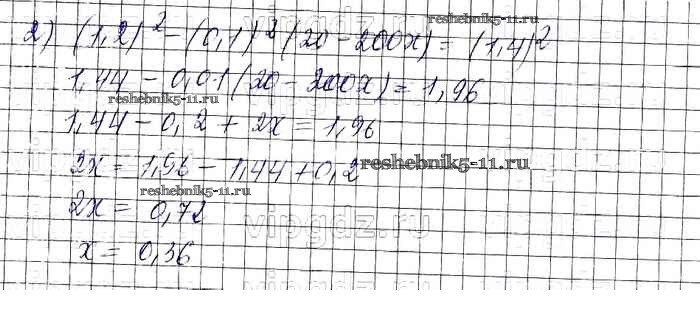 2) (1,2)² - (0,1)² (20 - 200x) = (1,4)²
1,44 - 0,01 (20 - 200x) = 1,96
1,44 - 0,2 + 2x = 1,96
2x = 1,96 - 1,44 + 0,2
2x = 0,72
x = 0,36
reshebnik5-11.ru
reshebnik5-11.ru
reshebnik5-11.ru
reshebnik5-11.ru
vipgdz.ru
vipgdz.ru
vipgdz.ru